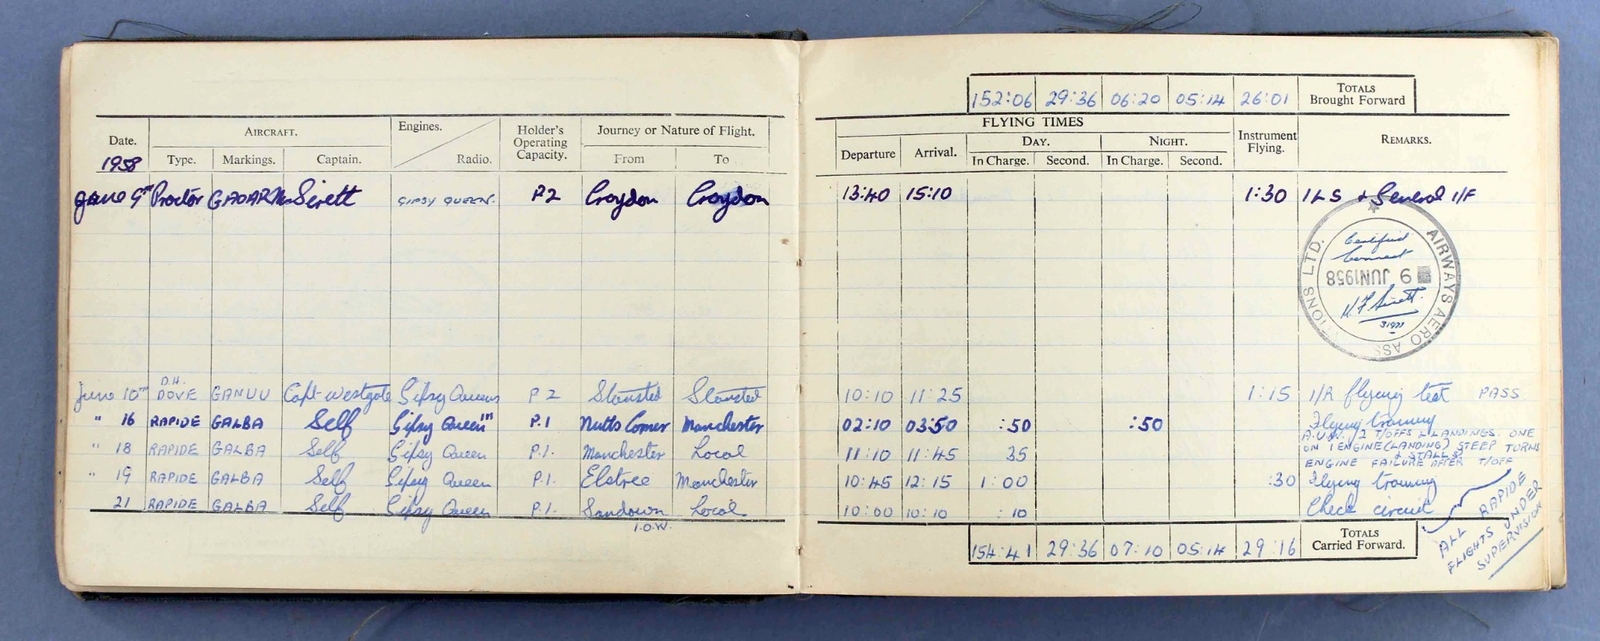 152:06 29:36 06:20 05:14 26:01 TOTALS Brought Forward
Date. AIRCRAFT. Engines. Holder's Operating Capacity. Journey or Nature of Flight. FLYING TIMES
1958 Type. Markings. Captain. Radio. From To Departure Arrival. DAY. NIGHT. Instrument Flying. REMARKS.
In Charge. Second. In Charge. Second.
June 9th Proctor GAOARM Sirett GIPSY QUEEN. P2 Croydon Croydon 13:40 15:10 1:30 ILS & General I/F
AIRWAYS AERO ASS IONS LTD.
Certified
Correct
9 JUN 1958
June 10th D.H. DOVE GANUU Capt. Westgate Gipsy Queens P2 Stansted Stansted 10:10 11:25 1:15 I/R flying test PASS
" 16 RAPIDE GALBA Self Gipsy Queen" P.1 Nutts Corner Manchester 02:10 03:50 :50 :50 Flying training
A.U.W. 2 T/OFFS & LANDINGS. ONE
" 18 RAPIDE GALBA Self Gipsy Queen P.1. Manchester Local 11:10 11:45 35 ON 1 ENGINE (LANDING) STEEP TURNS
& STALLS.
ENGINE FAILURE AFTER T/OFF
" 19 RAPIDE GALBA Self Gipsy Queen P.1. Elstree Manchester 10:45 12:15 1:00 :30 Flying training
21 RAPIDE GALBA Self Gipsy Queen P.1. Sandown Local 10:00 10:10 :10 Check circuit
I.O.W.
154:41 29:36 07:10 05:14 29:16 TOTALS Carried Forward.
ALL RAPIDE
FLIGHTS UNDER
SUPERVISION